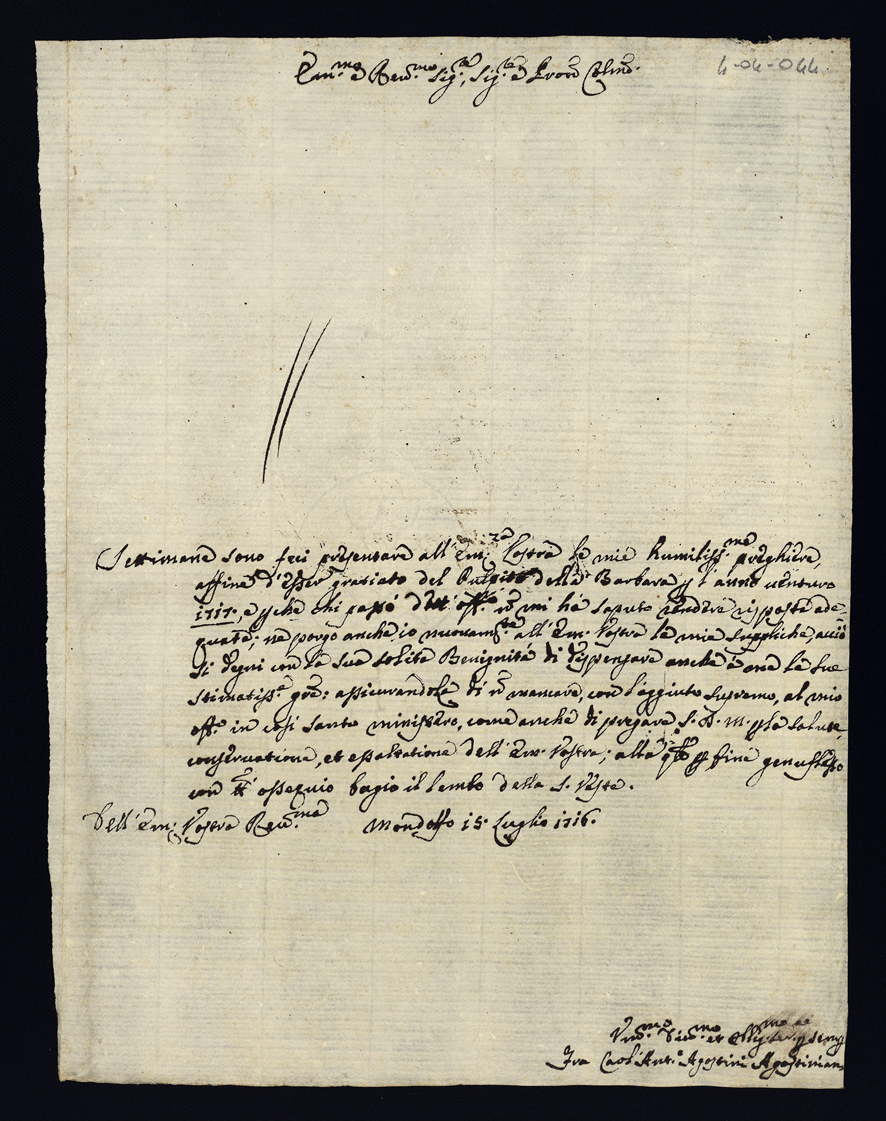 4-04-044
Em.mo e Rev.mo Sig.re, Sig.re e Pron Colmo.
Settimane sono feci presentare all'Em:za Vostra le mie humiliss.me preghiere,
affine d'esser gratiato del Pulpito della Barbara p l'anno venturo
1717., e pche chi passó dett' off.o nō mi há saputo rendere risposta ade-
quata; ne porgo anche io nuovam.te all'Em. Vostra le mie suppliche, acció
si degni con la sua solita Benignitá di dispensare anche á me le sue
stimatiss.e grē: assicurandola di nō mancare, con l'aggiuto supremo, al mio
off.o in cosi santo ministero, come anche di pregare S. D. M. p la salute,
conservatione, et essaltatione dell'Em. Vostra; alla quale p fine genuflesso
con tt' ossequio bagio il lembo della S. Veste.
Dell'Em: Vostra Rev.ma Mondolfo 15. Luglio 1716.
Um.mo Div.mo et Oblig.mo Ser. p sempre
Fra Carl'Ant.o Agostini Agostiniano